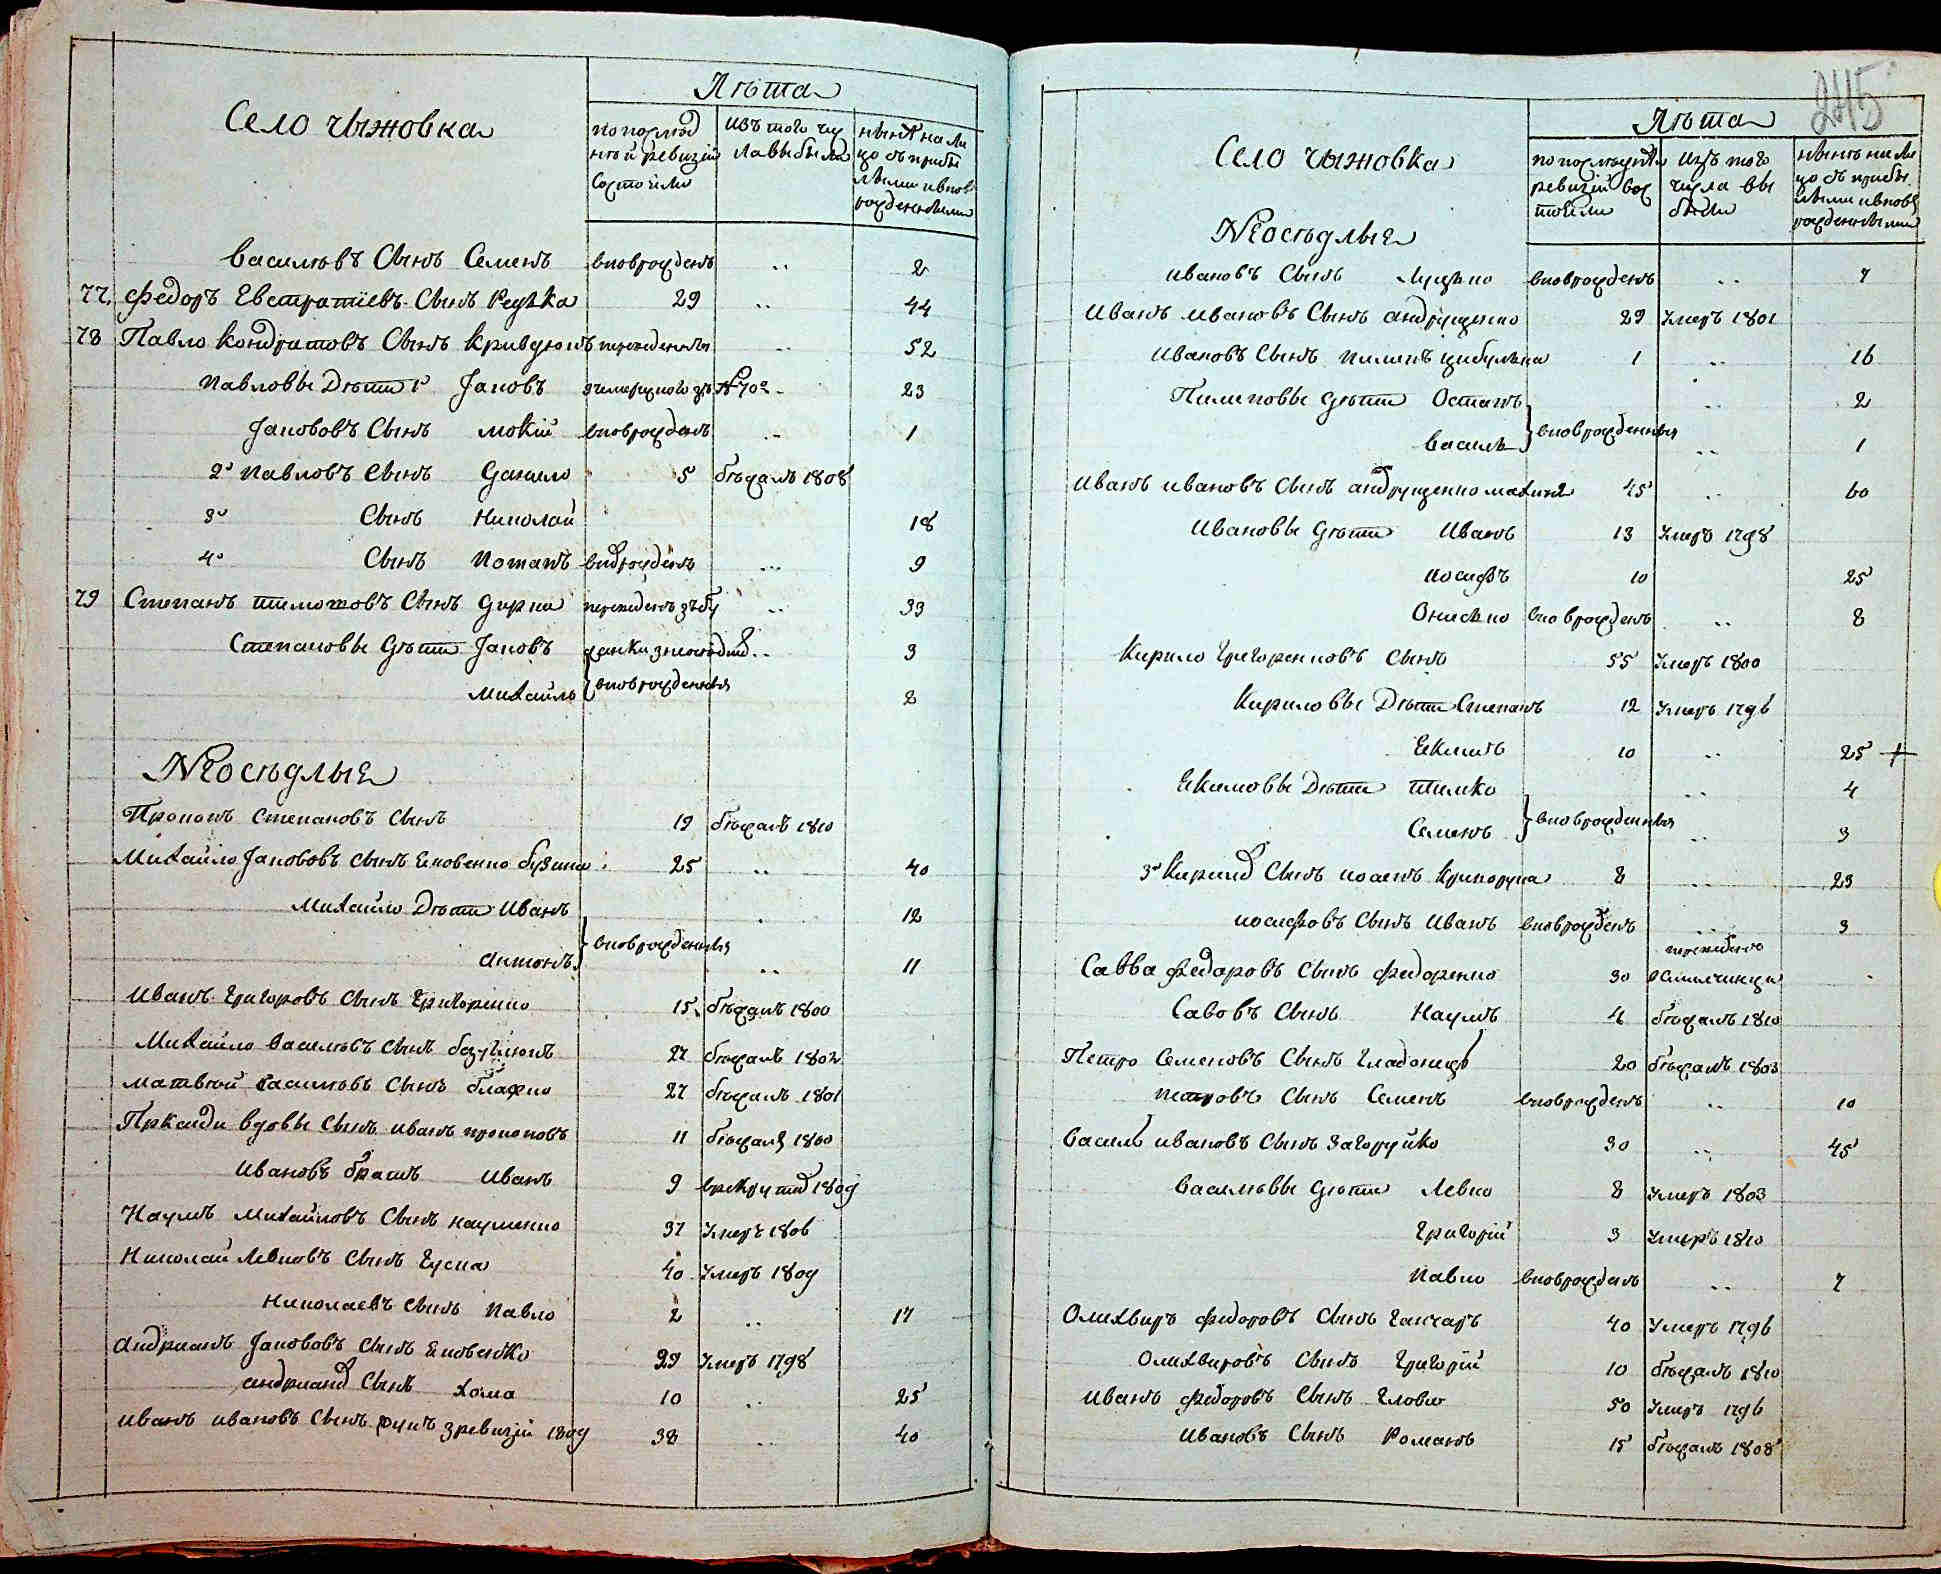 Село Чыжовка
Лѣта
по послѣд
ней ревизіи
состояли
изъ того чи
сла выбыло
нынѣ на ли
цо съ прибы
лыми и внов
рожденными
Васильовъ Сынъ Семенъ вновъ рожденъ .. 2
77. Федоръ Евстратіевъ Сынъ Редька 29 .. 44
78 Павло Кондратовъ Сынъ переведенны .. 52
Павловы Дѣти 1й Яковъ № 70го 23
Якововъ Сынъ Мокій вноврожденъ .. 1
2й Павловъ Сынъ Данило 5 бѣжалъ 1808
3й Сынъ Николай 18
4й Сынъ Потапъ вновроженъ ... 9
79 Степанъ Тимошовъ Сынъ переведенъ .. 33
Степановы Дѣти Яковъ .. 3
Михайло } вновъ рожденныя 2
Неосѣдлые
Прокопъ Степановъ Сынъ 19 бѣжалъ 1810
Михайло Якововъ Сынъ Еновенко 25 .. 40
Михайло Дѣти Иванъ . 12
Антонъ } вновъ рожденныя .. 11
Иванъ Григоровъ Сынъ Григоренко 15 бѣжалъ 1800
Михайло Васильовъ Сынъ 27 бѣжалъ 1802
Матвѣй Васильовъ Сынъ 27 бѣжалъ 1801
вдовы Сынъ Иванъ Прокоповъ 11 бѣжалъ 1800
Ивановъ братъ Иванъ 9 в рекруты 1809
Наумъ Михайловъ Сынъ Науменко 37 Умеръ 1806
Николай Левковъ Сынъ Гуска 40 Умеръ 1809
Николаевъ Сынъ Павло 2 .. 17
Андриянъ Якововъ Сынъ Еновенко 29 Умеръ 1798
Андрианов Сынъ Хома 10 .. 25
Иванъ Ивановъ Сынъ з ревизіи 1809 38 .. 40
245
Село Чыжовка
Лѣта
по послѣдней
ревизіи сос
тояли
изъ того
числа вы
были
нынѣ на ли
цо съ прибы
лыми и вновъ
рожденными
Неосѣдлые
Ивановъ Сынъ Луцько вновъ рожденъ .. 7
Иванъ Ивановъ Сынъ Андрущенко 29 Умеръ 1801
Ивановъ Сынъ Пилипъ Цибулька 1 .. 16
Пилиповы Дѣти Остапъ .. 2
Василь } вновъ рожденныя .. 1
Иванъ Ивановъ Сынъ Андрущенко 45 .. 60
Ивановы Дѣти Иванъ 13 Умеръ 1798
Иосифъ 10 25
Онисько вновъ рожденъ .. 8
Кирило Григоренковъ Сынъ 55 Умеръ 1800
Кириловы Дѣти Степанъ 12 Умеръ 1796
Екимъ 10 .. 25 +
Екимовы Дѣти Тимко .. 4
Семенъ } вновъ рожденныя .. 3
3й Кирилов Сынъ 8 .. 23
Иосифовъ Сынъ Иванъ вновъ рожденъ ... 3
Савва Федаровъ Сынъ Федоренко 30 переведенъ
Савовъ Сынъ Наумъ 4 бѣжалъ 1810
Петро Семеновъ Сынъ 20 бѣжалъ 1803
Петровъ Сынъ Семенъ вновъ рожденъ .. 10
Василь Ивановъ Сынъ Загоруйко 30 .. 45
Васильовы Дѣти Левко 8 Умеръ 1803
Григорій 3 Умеръ 1810
Павло вновъ рожденъ .. 7
Олихвиръ Федоровъ Сынъ Ганчаръ 40 Умеръ 1796
Олихвировъ Сынъ Григорій 10 бѣжалъ 1810
Иванъ Федоровъ Сынъ 50 Умеръ 1796
Ивановъ Сынъ Романъ 15 бѣжалъ 1808